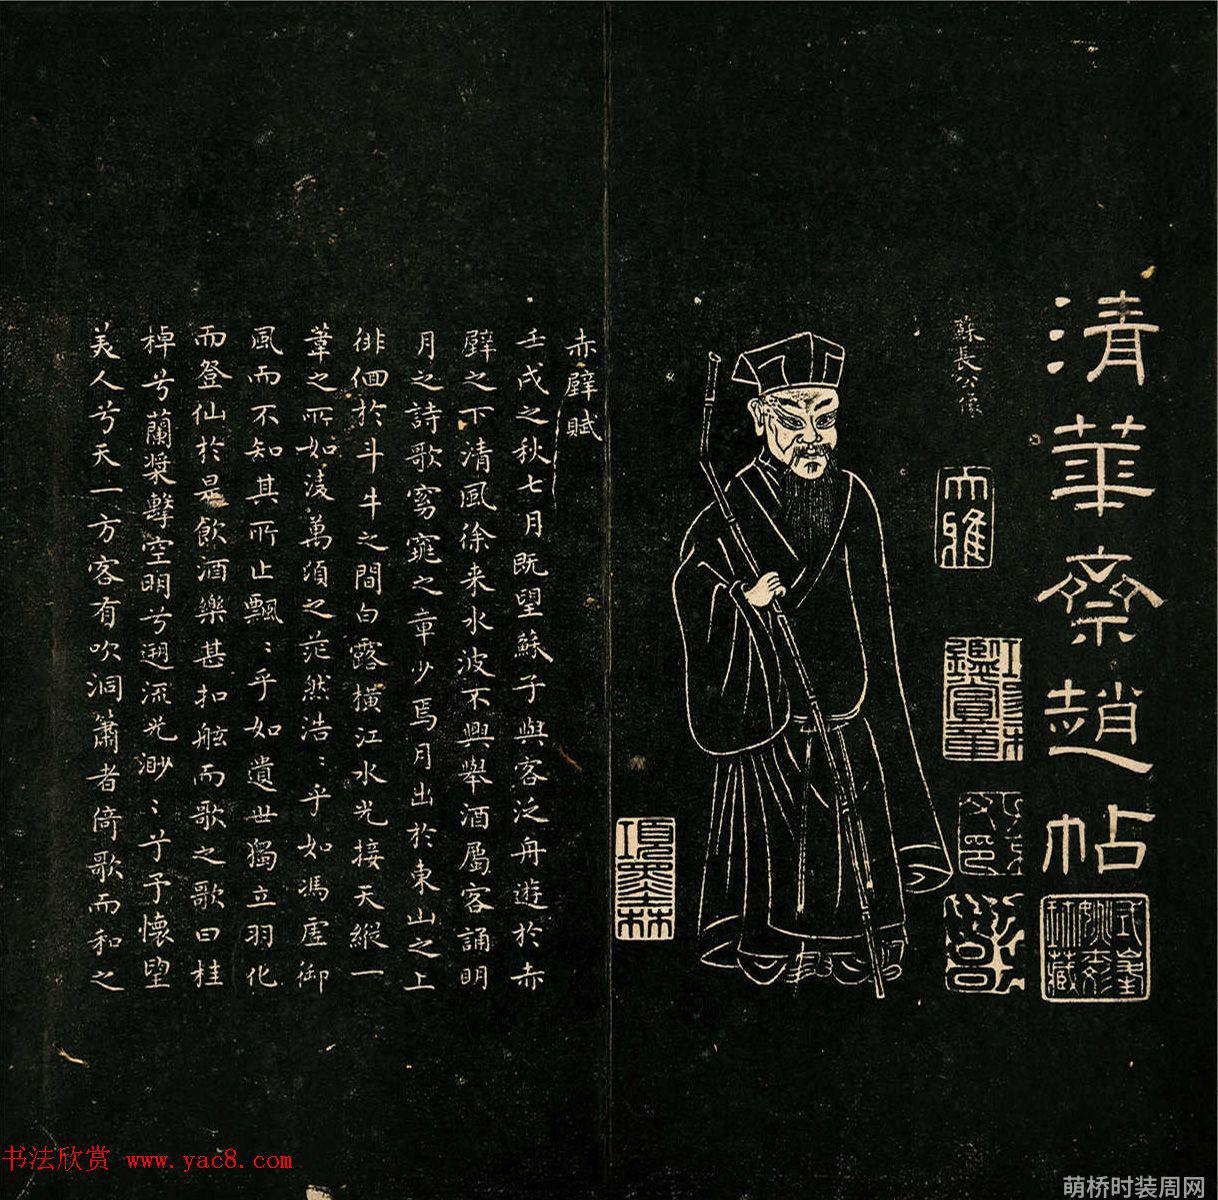 清華齋趙帖
蘇長公像
大雅
赤壁賦
壬戌之秋七月既望蘇子與客泛舟遊於赤
壁之下清風徐来水波不興舉酒屬客誦明
月之詩歌窈窕之章少焉月出於東山之上
徘佪於斗牛之間白露橫江水光接天縱一
葦之所如淩萬頃之茫然浩〻乎如馮虛御
風而不知其所止飄〻乎如遺世獨立羽化
而登仙於是飲酒樂甚扣舷而歌之歌曰桂
棹兮蘭槳擊空明兮遡流光渺〻兮予懷望
美人兮天一方客有吹洞簫者倚歌而和之
书法欣赏 www.yac8.com
萌桥时装周网